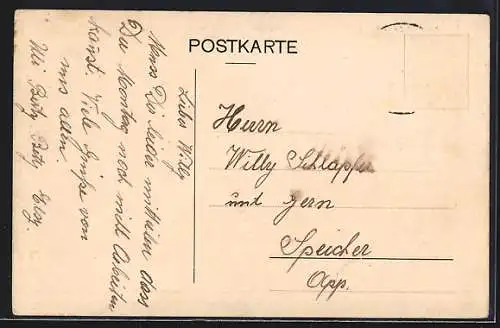 POSTKARTE
Lieber Willy
Muss Dir leider mitteilen dass
Du Montag noch nicht Arbeiten
kanst. Viele Grüsse von
uns allen
Herrn
Willy Schläpfer
und Fern
Speicher
App.